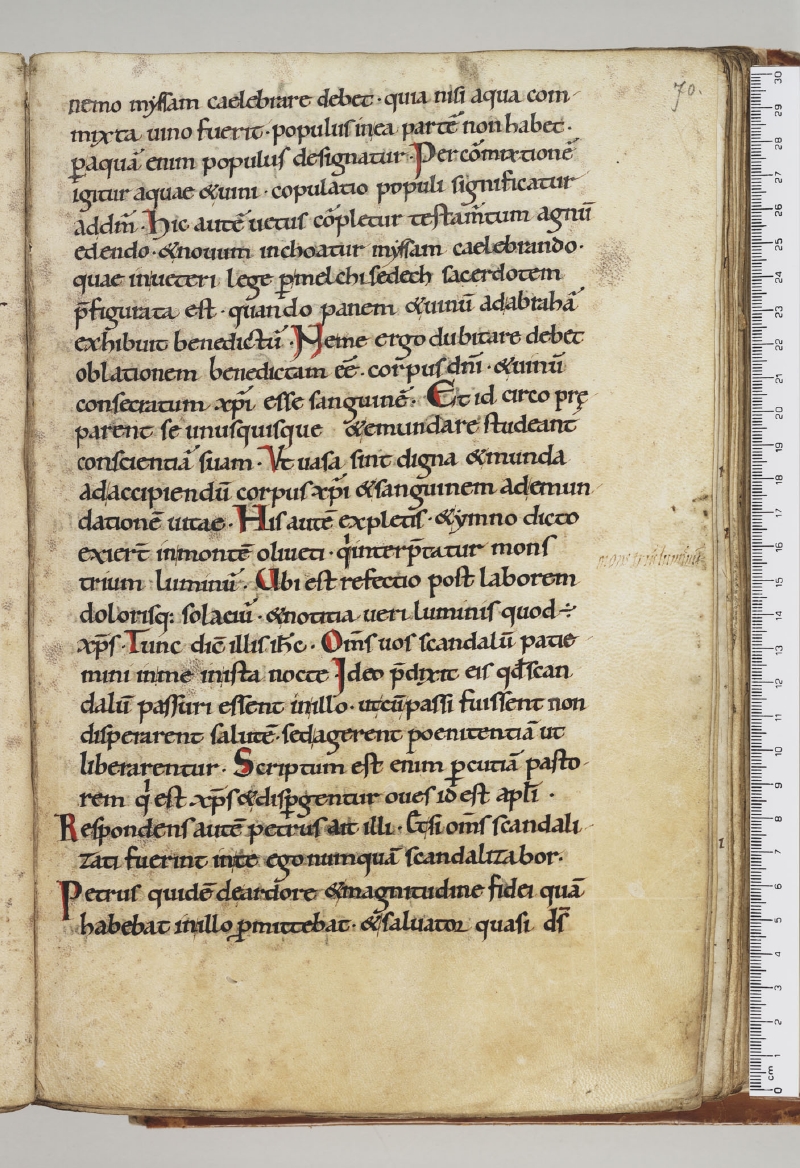 70.
nemo myssam caelebrare debet · quia nisi aqua com
mixta uino fuerit · populus in ea partē non habet ·
ꝑ aquā enim populus designatur · Per cōmixtionē
igitur aquae & uini · copulatio populi significatur
ad dm̄ · Hic autē uetus cōpletur testam̄tum agnū
edendo · & nouum inchoatur myssam caelebrando ·
quae in ueteri lege ꝑ melchisedech sacerdotem
p̄figurata est · quando panem & uinū ad abrahā
exhibuit benedictū · Neme ergo dubitare debet
oblationem benedictam eē · corpus dn̄i · & uinū
consecratum xp̄i esse sanguinē · Et id circo prę
parent se unusquisque & emundare studeant
conscientiā suam · Vt uasa sint digna & munda
ad accipiendū corpus xp̄i & sanguinem ad emun
dationē uitae · His autē expletis · & ymno dicto
exiert̄ in montē oliueti · q̇ interp̄tatur mons
trium luminū · Ubi est refectio post laborem
dolorisq; solaciū · & notitia ueri luminis quod ÷
mons trium luminū
xp̄s · Tunc dic̄ illis ih̄c · Om̄s uos scandalū patie
mini in me in ista nocte Ideo p̄dixit eis qđ scan
dalū passuri essent in illo · ut cū passi fuissent non
disperarent salutē · sed agerent poenitentiā ut
liberarentur · Scriptum est enim ꝑcutiā pasto
rem q̇ est xp̄s & dispgentur oues id est apl̄i ·
Respondens autē petrus ait illi · Etsi om̄s scandali
zati fuerint in te ego numquā scandalizabor ·
Petrus quidē de ardore & magnitudine fidei quā
habebat in illo ꝓmittebat · & saluator quasi ds̄